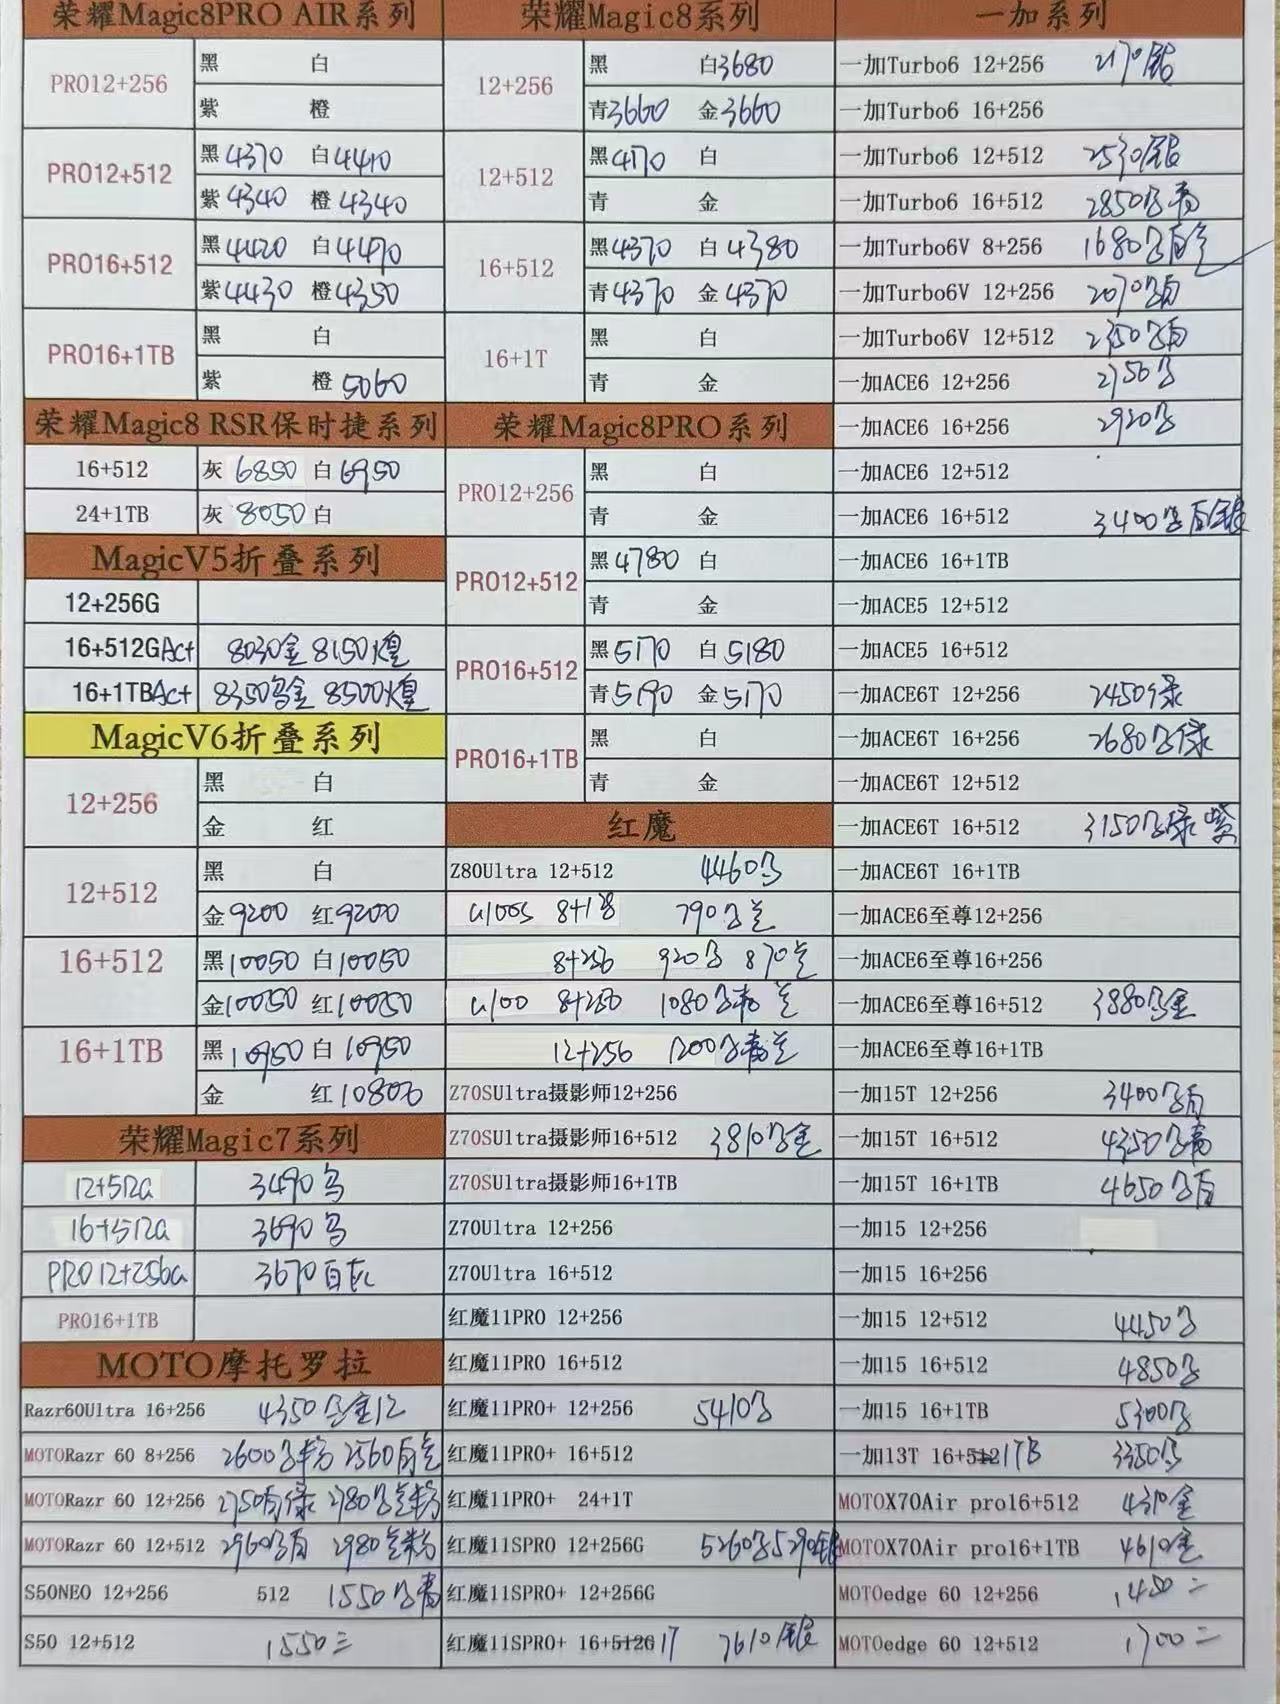 荣耀Magic8PRO AIR系列
PRO12+256 黑 白
紫 橙
PRO12+512 黑4370 白4410
紫4340 橙4340
PRO16+512 黑4420 白4470
紫4430 橙4350
PRO16+1TB 黑 白
紫 橙5060
荣耀Magic8 RSR保时捷系列
16+512 灰6850 白6950
24+1TB 灰8050 白
MagicV5折叠系列
12+256G
16+512GAct 8030金 8150煌
16+1TBAct 8350 金 8500煌
MagicV6折叠系列
12+256 黑 白
金 红
12+512 黑 白
金9200 红9200
16+512 黑10050 白10050
金10050 红10050
16+1TB 黑10950 白10950
金 红10800
荣耀Magic7系列
12+512G 3490
16+512G 3690
PRO12+256G 3670白灰
PRO16+1TB
MOTO摩托罗拉
Razr60Ultra 16+256 4350 金
MOTORazr 60 8+256 2600 粉 2560白
MOTORazr 60 12+256 2750 绿 2780 粉
MOTORazr 60 12+512 2960 白 2980 粉
S50NEO 12+256 512 1550 青
S50 12+512 1550
荣耀Magic8系列
12+256 黑 白3680
青3660 金3660
12+512 黑4170 白
青 金
16+512 黑4370 白4380
青4370 金4370
16+1T 黑 白
青 金
荣耀Magic8PRO系列
PRO12+256 黑 白
青 金
PRO12+512 黑4780 白
青 金
PRO16+512 黑5170 白5180
青5190 金5170
PRO16+1TB 黑 白
青 金
红魔
Z80Ultra 12+512 4460
8+ 790
8+256 920 870
8+256 1080
12+256 1200
Z70SUltra摄影师12+256
Z70SUltra摄影师16+512 3810 金
Z70SUltra摄影师16+1TB
Z70Ultra 12+256
Z70Ultra 16+512
红魔11PRO 12+256
红魔11PRO 16+512
红魔11PRO+ 12+256 5410
红魔11PRO+ 16+512
红魔11PRO+ 24+1T
红魔11SPRO 12+256G 5260 5290银
红魔11SPRO+ 12+256G
红魔11SPRO+ 16+512G 1T 7610银
一加系列
一加Turbo6 12+256 2170银
一加Turbo6 16+256
一加Turbo6 12+512 2530银
一加Turbo6 16+512 2850 青
一加Turbo6V 8+256 1680 白
一加Turbo6V 12+256 2070 白
一加Turbo6V 12+512 2350 白
一加ACE6 12+256 2750
一加ACE6 16+256 2920
一加ACE6 12+512
一加ACE6 16+512 3400 白银
一加ACE6 16+1TB
一加ACE5 12+512
一加ACE5 16+512
一加ACE6T 12+256 2450绿
一加ACE6T 16+256 2680 绿
一加ACE6T 12+512
一加ACE6T 16+512 3150 绿 紫
一加ACE6T 16+1TB
一加ACE6至尊12+256
一加ACE6至尊16+256
一加ACE6至尊16+512 3880 金
一加ACE6至尊16+1TB
一加15T 12+256 3400 白
一加15T 16+512 4350 青
一加15T 16+1TB 4650 白
一加15 12+256
一加15 16+256
一加15 12+512 4450
一加15 16+512 4850
一加15 16+1TB 5300
一加13T 16+512 1TB 3350
MOTOX70Air pro16+512 4310金
MOTOX70Air pro16+1TB 4610金
MOTOedge 60 12+256 1450
MOTOedge 60 12+512 1700